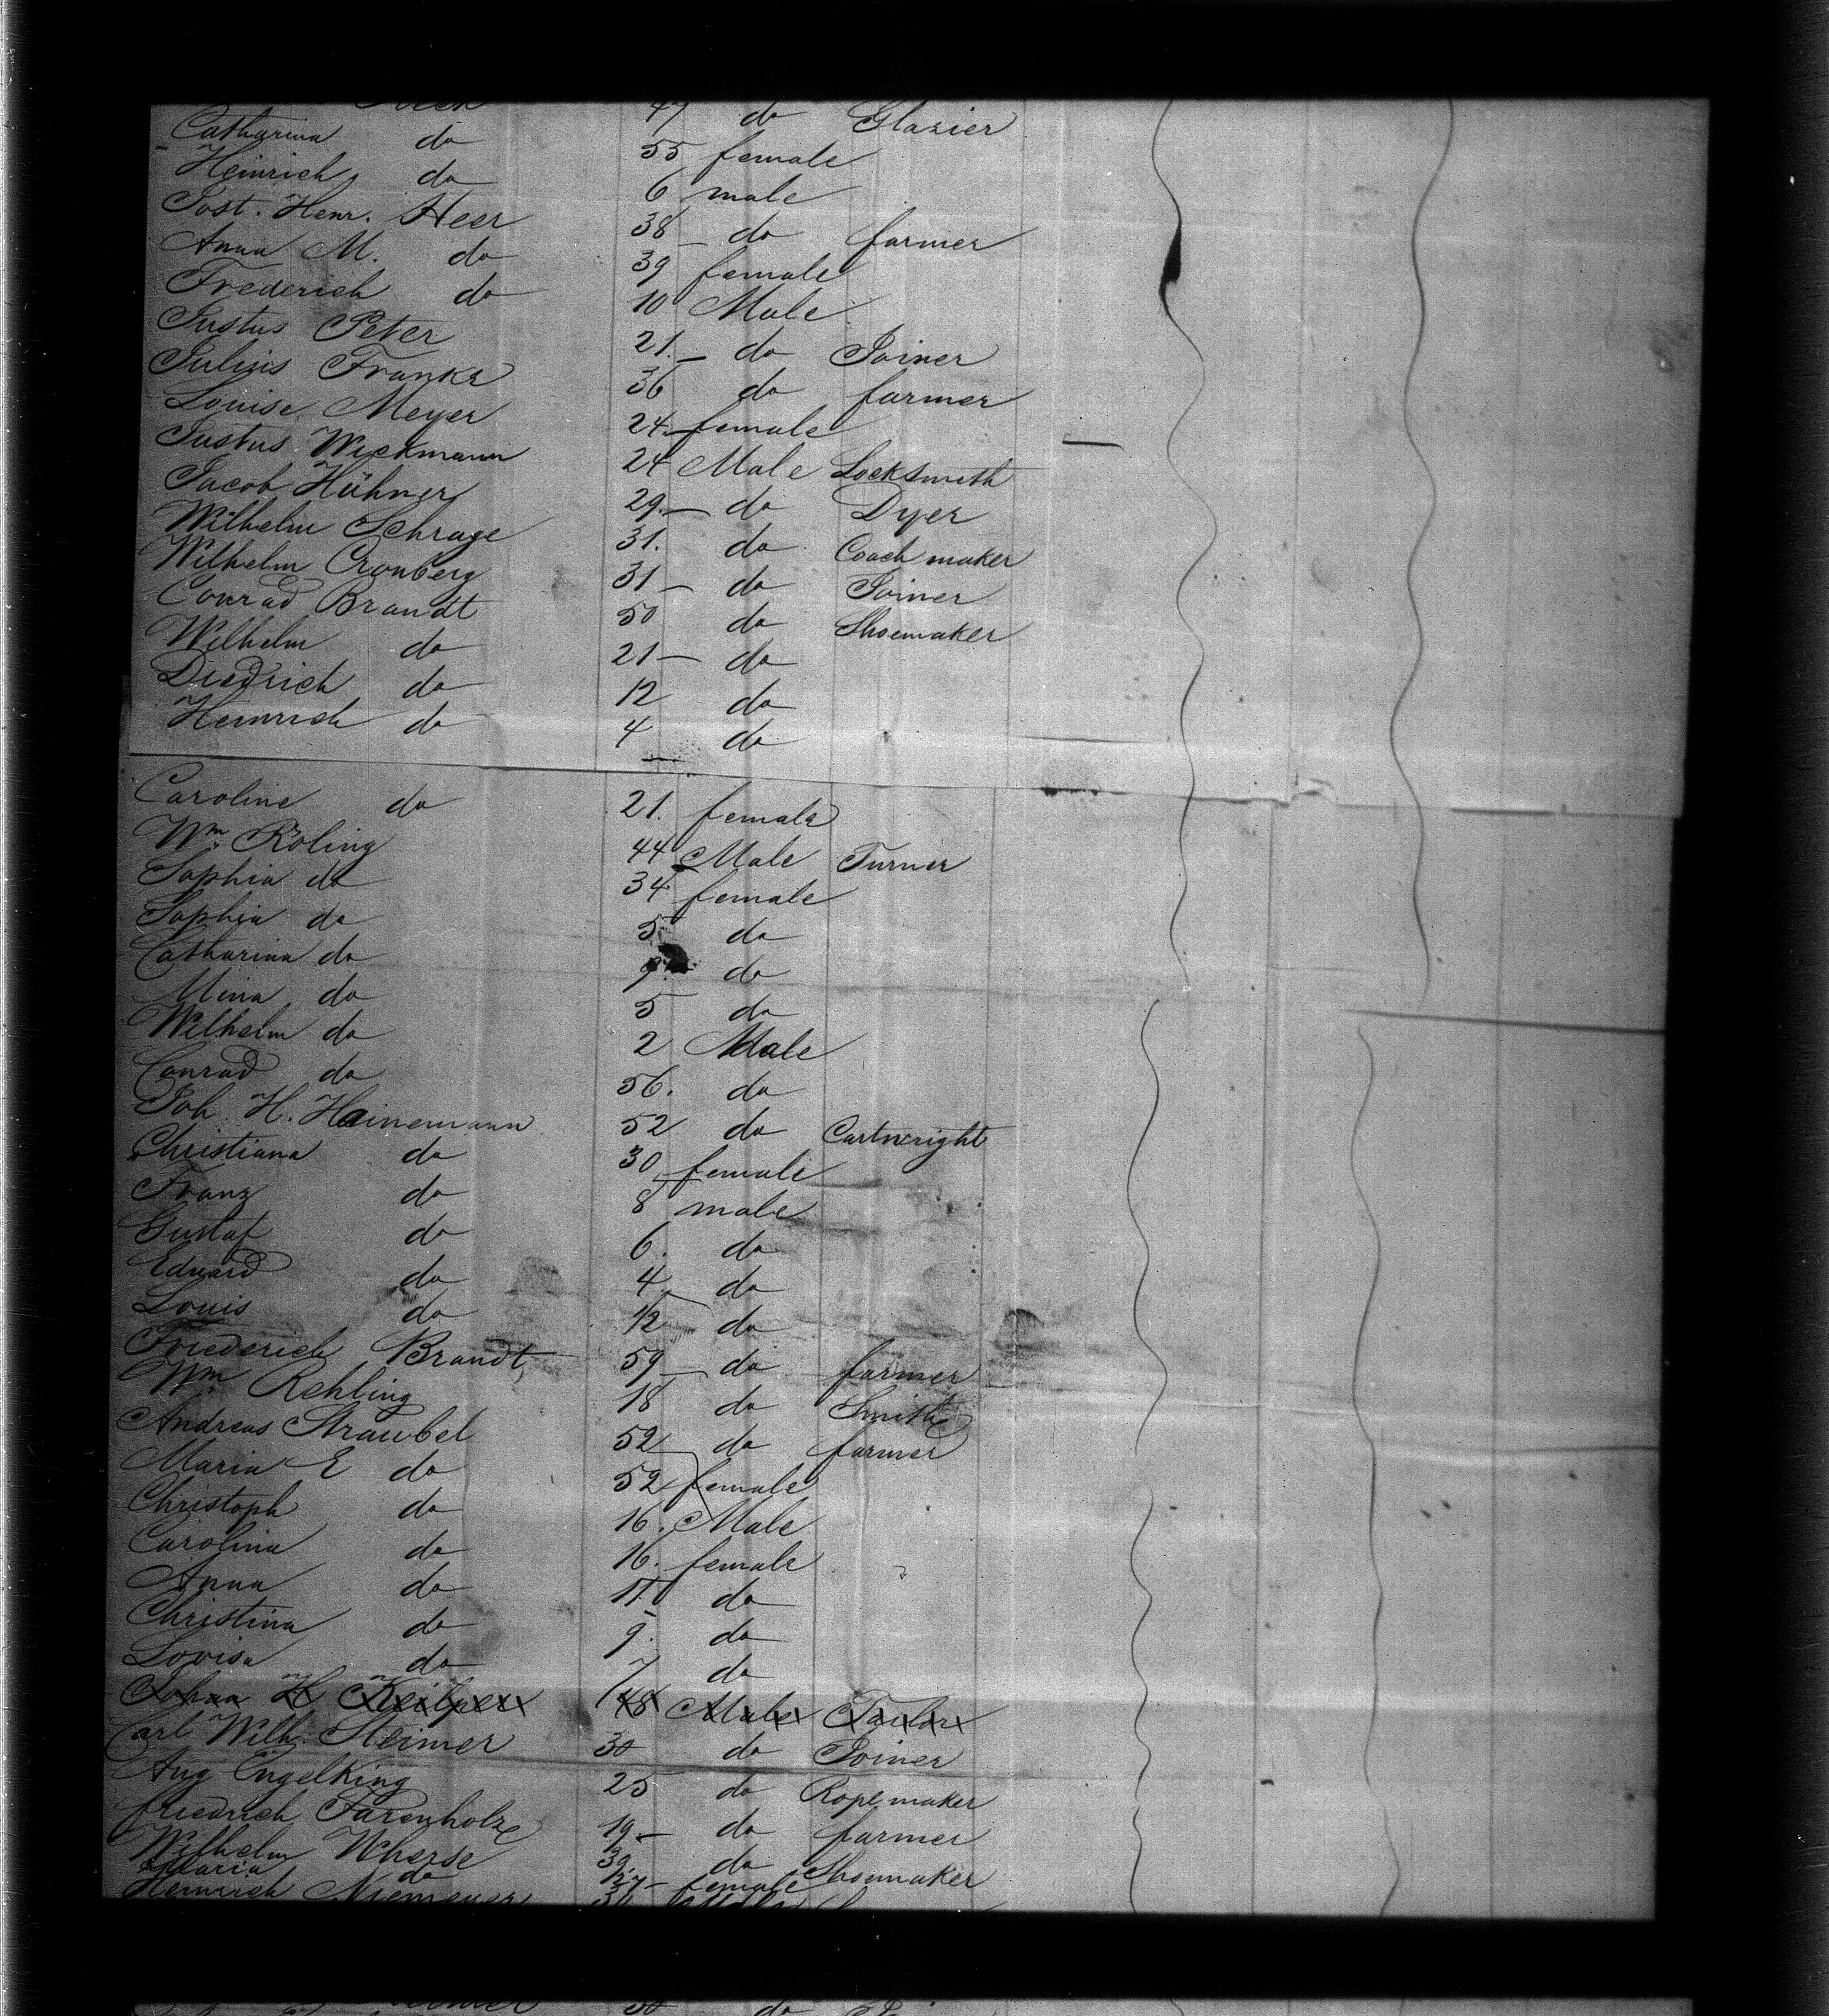 47 do Glazier
Catharina do 55 female
Heinrich do 6 male
Jost. Henr. Heer 38 do farmer
Anna M. do 39 female
Frederich do 10 Male
Justus Peter 21. do Joiner
Julius Franke 36 do farmer
Louise Meyer 24. female
Justus Wickmann 24 Male Locksmith
Jacob Hühner 29. do Dyer
Wilhelm Schrage 31. do Coach maker
Wilhelm Cronberg 31 do Joiner
Conrad Brandt 50 do Shoemaker
Wilhelm do 21 do
Diedrich do 12 do
Heinrich do 4 do
Caroline do 21. female
Wm. Röling 44 Male Turner
Sophia do 34. female
Sophia do 5 do
Catharina do 9. do
Mina do 5 do
Wilhelm do 2 Male
Conrad do 56. do
Joh. H. Heinemann 52 do Cartwright
Christiana do 30 female
Franz do 8 male
Gustaf do 6. do
Eduard do 4. do
Louis do 1/2 do
Friederich Brandt, 59 do farmer
Wm. Rehling 18 do Smith
Andreas Straubel 52 do farmer
Maria E do 52 female
Christoph do 16. Male
Carolina do 16. female
Anna do 11. do
Christina do 9. do
Lovisa do 7 do
Johan H 48 Male Tailor
Carl Wilh. Steimer 30 do Joiner
Aug Engelking 25 do Ropemaker
friedrich Farenholz 19. do farmer
Wilhelm Wherse 39. do Shoemaker
Maria do female
Heinrich Niemeyer
30 do